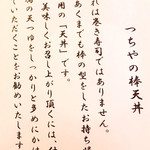 つちやの棒天丼
れは巻き寿司ではありません。
あくまでも棒の型をしたお持ち
用の「天丼」です。
美味しくお召し上がり頂くには、
の天つゆをしっかりと多めにか
していただくことをお勧めいたします